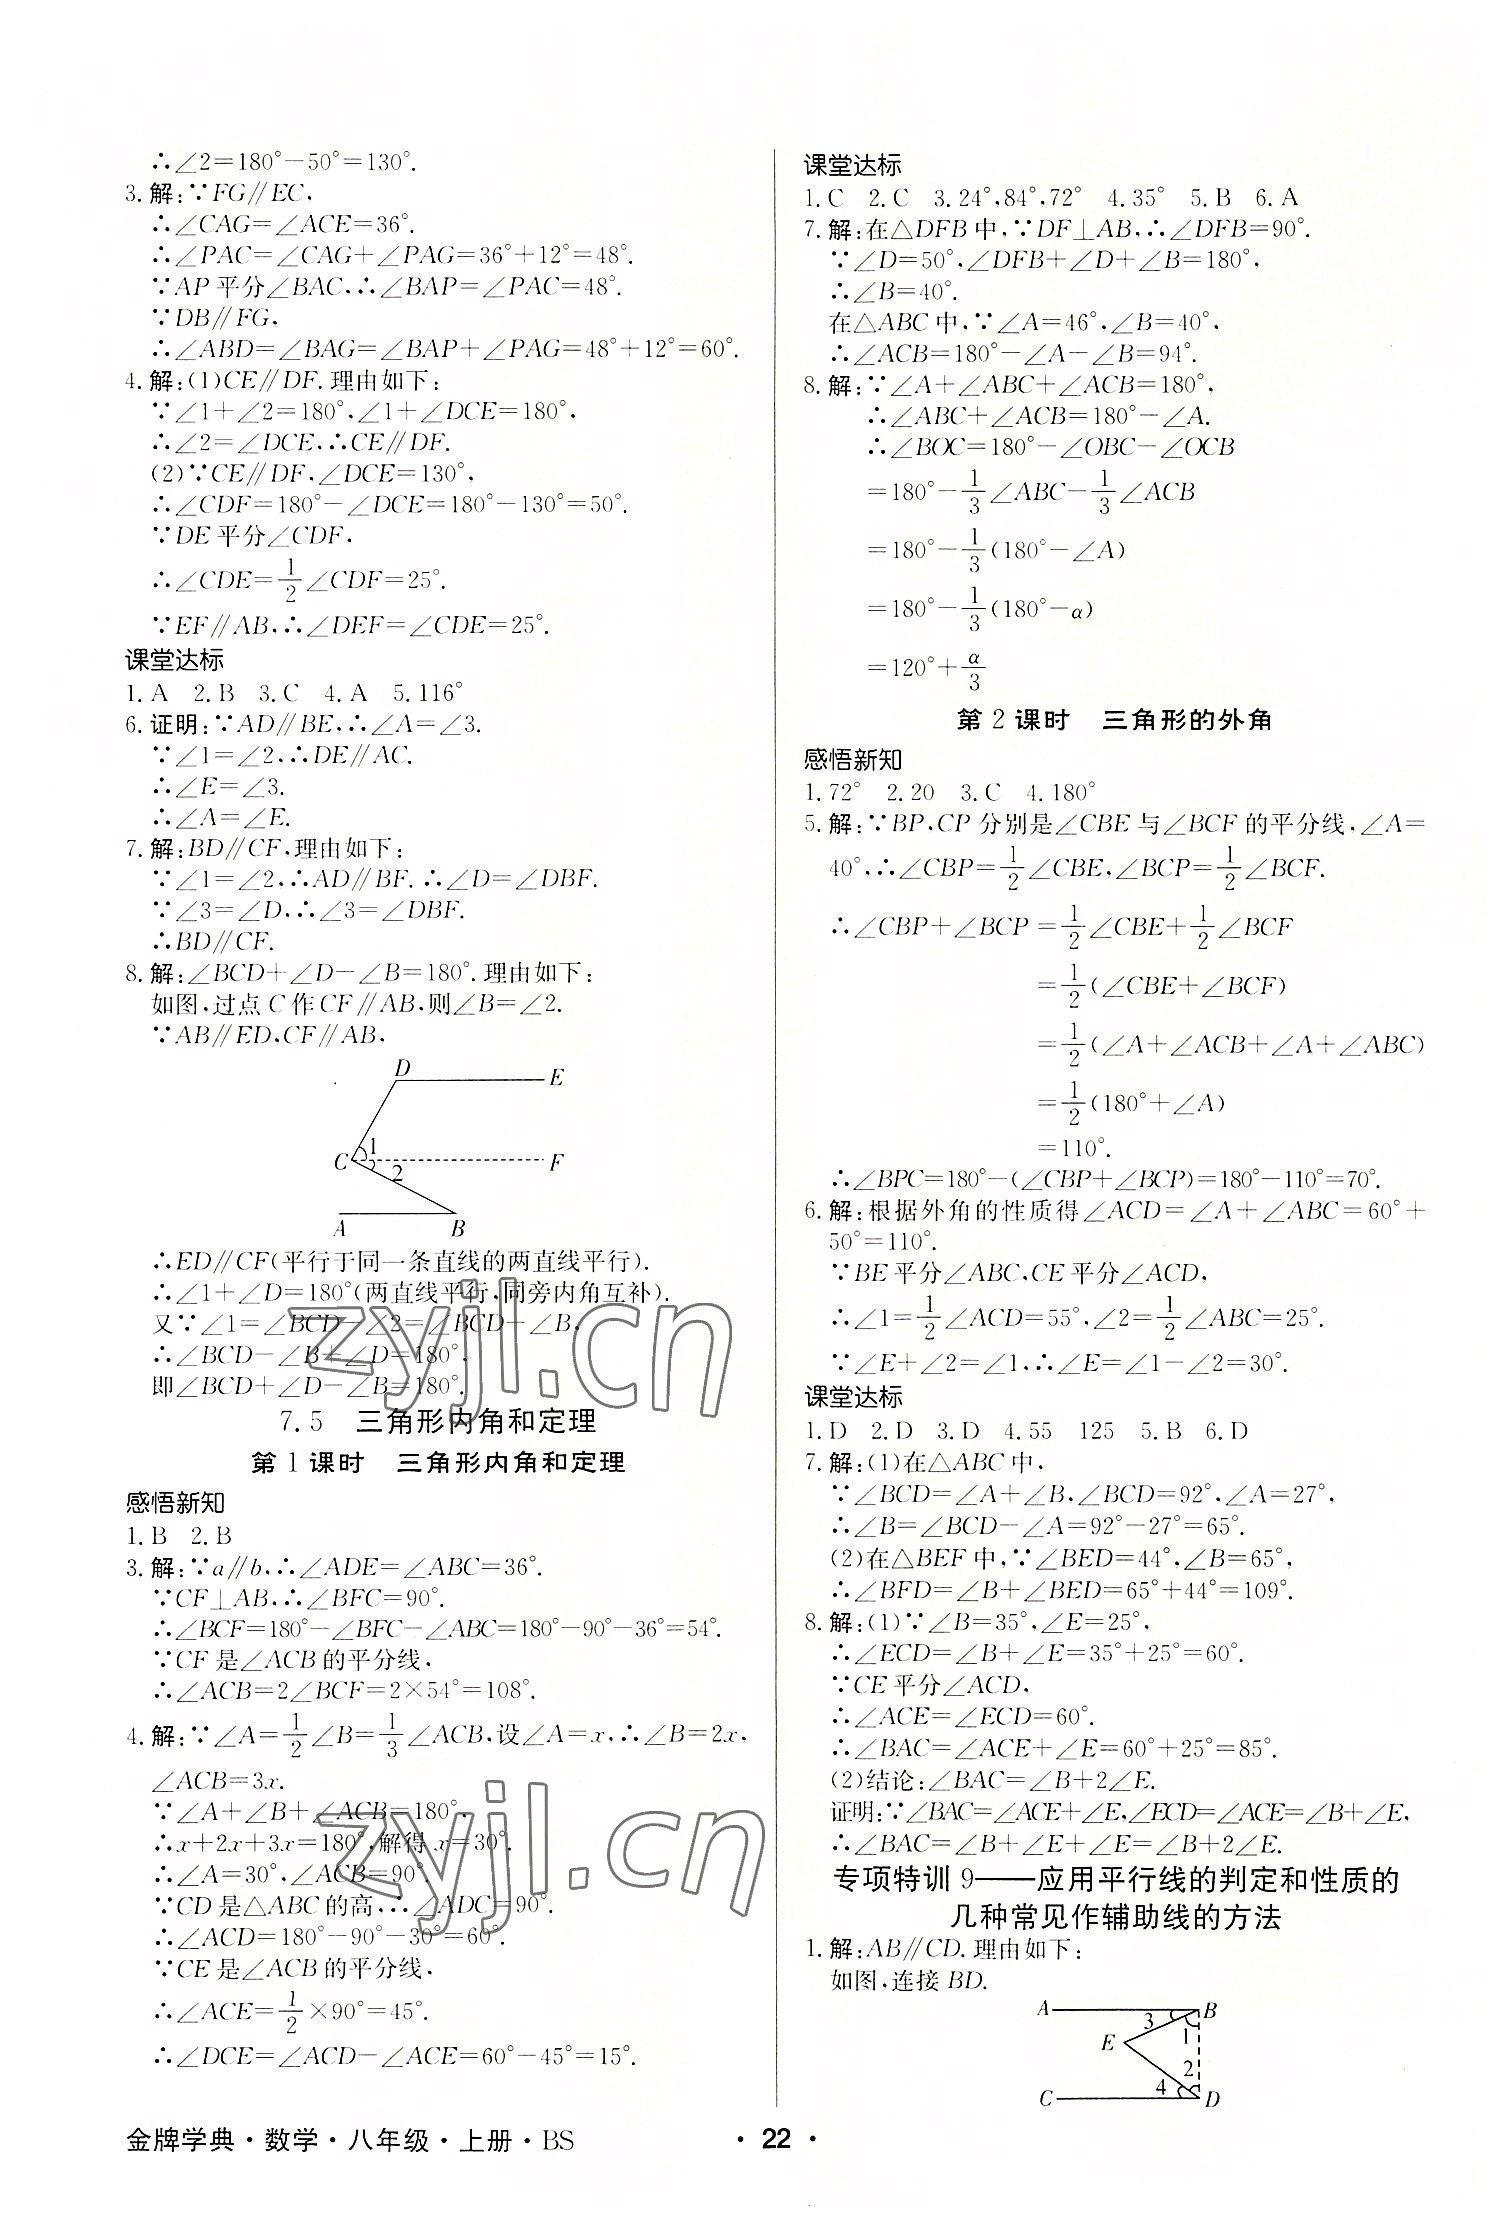 ∴∠2=180°-50°=130°.
3.解:∵FG∥EC,
∴∠CAG=∠ACE=36°.
∴∠PAC=∠CAG+∠PAG=36°+12°=48°.
∵AP平分∠BAC,∴∠BAP=∠PAC=48°.
∵DB∥FG,
∴∠ABD=∠BAG=∠BAP+∠PAG=48°+12°=60°.
4.解:(1)CE∥DF.理由如下:
∵∠1+∠2=180°,∠1+∠DCE=180°,
∴∠2=∠DCE,∴CE∥DF.
(2)∵CE∥DF,∠DCE=130°,
∴∠CDF=180°-∠DCE=180°-130°=50°.
∵DE平分∠CDF,
∴∠CDE=1/2∠CDF=25°.
∵EF∥AB,∴∠DEF=∠CDE=25°.
课堂达标
1.A 2.B 3.C 4.A 5.116°
6.证明:∵AD∥BE,∴∠A=∠3.
∵∠1=∠2,∴DE∥AC.
∴∠E=∠3.
∴∠A=∠E.
7.解:BD∥CF,理由如下:
∵∠1=∠2,∴AD∥BF.∴∠D=∠DBF.
∵∠3=∠D,∴∠3=∠DBF.
∴BD∥CF.
8.解:∠BCD+∠D-∠B=180°.理由如下:
如图,过点C作CF∥AB,则∠B=∠2.
∵AB∥ED,CF∥AB,
D E
C 1 2 F
A B
∴ED∥CF(平行于同一条直线的两直线平行).
∴∠1+∠D=180°(两直线平行,同旁内角互补).
又∵∠1=∠BCD-∠2=∠BCD-∠B,
∴∠BCD-∠B+∠D=180°,
即∠BCD+∠D-∠B=180°.
7.5 三角形内角和定理
第1课时 三角形内角和定理
感悟新知
1.B 2.B
3.解:∵a∥b,∴∠ADE=∠ABC=36°.
∵CF⊥AB,∴∠BFC=90°.
∴∠BCF=180°-∠BFC-∠ABC=180°-90°-36°=54°.
∵CF是∠ACB的平分线,
∴∠ACB=2∠BCF=2×54°=108°.
4.解:∵∠A=1/2∠B=1/3∠ACB,设∠A=x,∴∠B=2x,
∠ACB=3x.
∵∠A+∠B+∠ACB=180°,
∴x+2x+3x=180°,解得x=30°.
∴∠A=30°,∠ACB=90°.
∵CD是△ABC的高,∴∠ADC=90°.
∴∠ACD=180°-90°-30°=60°.
∵CE是∠ACB的平分线,
∴∠ACE=1/2×90°=45°.
∴∠DCE=∠ACD-∠ACE=60°-45°=15°.
课堂达标
1.C 2.C 3.24°,84°,72° 4.35° 5.B 6.A
7.解:在△DFB中,∵DF⊥AB,∴∠DFB=90°.
∵∠D=50°,∠DFB+∠D+∠B=180°,
∴∠B=40°.
在△ABC中,∵∠A=46°,∠B=40°,
∴∠ACB=180°-∠A-∠B=94°.
8.解:∵∠A+∠ABC+∠ACB=180°,
∴∠ABC+∠ACB=180°-∠A.
∴∠BOC=180°-∠OBC-∠OCB
=180°-1/3∠ABC-1/3∠ACB
=180°-1/3(180°-∠A)
=180°-1/3(180°-α)
=120°+α/3
第2课时 三角形的外角
感悟新知
1.72° 2.20 3.C 4.180°
5.解:∵BP,CP分别是∠CBE与∠BCF的平分线,∠A=
40°,∴∠CBP=1/2∠CBE,∠BCP=1/2∠BCF.
∴∠CBP+∠BCP=1/2∠CBE+1/2∠BCF
=1/2(∠CBE+∠BCF)
=1/2(∠A+∠ACB+∠A+∠ABC)
=1/2(180°+∠A)
=110°.
∴∠BPC=180°-(∠CBP+∠BCP)=180°-110°=70°.
6.解:根据外角的性质得∠ACD=∠A+∠ABC=60°+
50°=110°.
∵BE平分∠ABC,CE平分∠ACD,
∴∠1=1/2∠ACD=55°,∠2=1/2∠ABC=25°.
∵∠E+∠2=∠1,∴∠E=∠1-∠2=30°.
课堂达标
1.D 2.D 3.D 4.55 125 5.B 6.D
7.解:(1)在△ABC中,
∵∠BCD=∠A+∠B,∠BCD=92°,∠A=27°,
∴∠B=∠BCD-∠A=92°-27°=65°.
(2)在△BEF中,∵∠BED=44°,∠B=65°,
∴∠BFD=∠B+∠BED=65°+44°=109°.
8.解:(1)∵∠B=35°,∠E=25°,
∴∠ECD=∠B+∠E=35°+25°=60°.
∵CE平分∠ACD,
∴∠ACE=∠ECD=60°.
∴∠BAC=∠ACE+∠E=60°+25°=85°.
(2)结论:∠BAC=∠B+2∠E.
证明:∵∠BAC=∠ACE+∠E,∠ECD=∠ACE=∠B+∠E,
∴∠BAC=∠B+∠E+∠E=∠B+2∠E.
专项特训9——应用平行线的判定和性质的
几种常见作辅助线的方法
1.解:AB∥CD.理由如下:
如图,连接BD.
A 3 B
E 1
2
C 4 D
金牌学典·数学·八年级·上册·BS
·22·
zyjl.cn
zyjl.cn